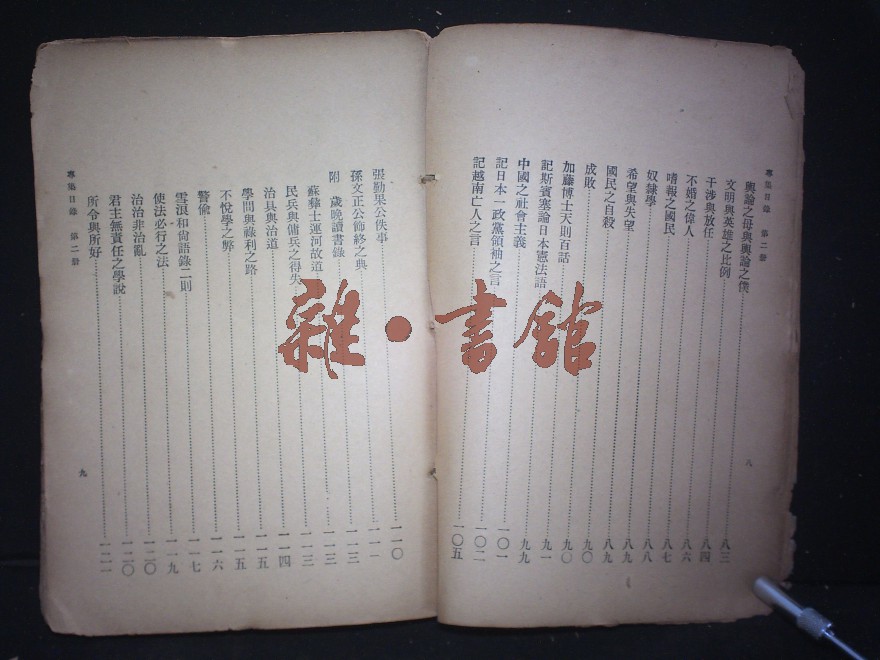 專集目錄 第二冊
輿論之母與輿論之僕 八三
文明與英雄之比例 八四
干涉與放任 八六
不婚之偉人 八七
嗜報之國民 八八
奴隸學 八九
希望與失望 八九
國民之自殺 九〇
成敗 九〇
加藤博士天則百話 九一
記斯賓塞論日本憲法語 九九
中國之社會主義 一〇一
記日本一政黨領袖之言 一〇二
記越南亡人之言 一〇五
八
張勤果公佚事 一一〇
孫文正公飾終之典 一一一
附 歲晚讀書錄 一一三
蘇彝士運河故道 一一三
民兵與傭兵之得失 一一三
治具與治道 一一四
學問與祿利之路 一一五
不悅學之弊 一一五
警偷 一一六
雪浪和尚語錄二則 一一七
使法必行之法 一一九
治治非治亂 一二〇
君主無責任之學說 一二〇
所令與所好 一二一
專集目錄 第二冊
九
雜·書館